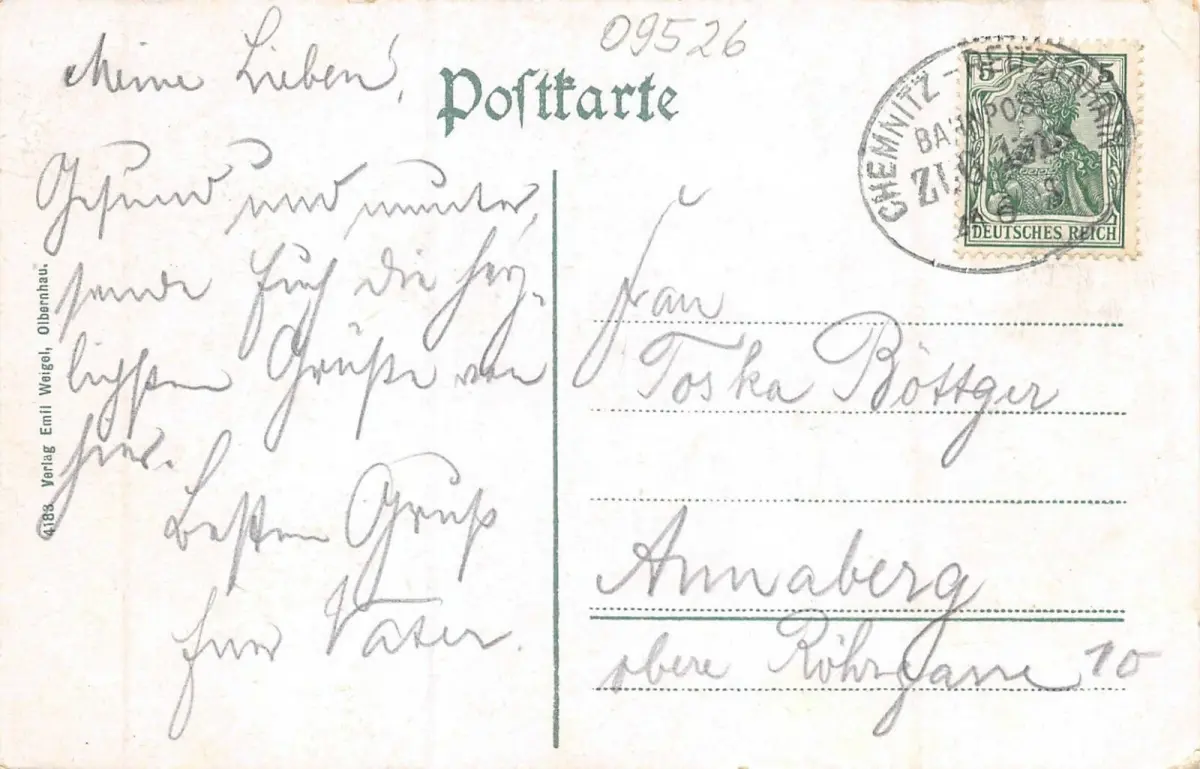 09526
Meine Lieben!
Postkarte
Gesund und munter,
sende Euch die herz-
lichsten Grüße von
hier.
Besten Gruß
Euer Vater.
4183 Verlag Emil Weigel, Olbernhau.
5 5
DEUTSCHES REICH
CHEMNITZ - REITZENHAIN
BAHNPOST
ZUG
6 8
Frau
Toska Böttger
Annaberg
obere Röhrgasse 10